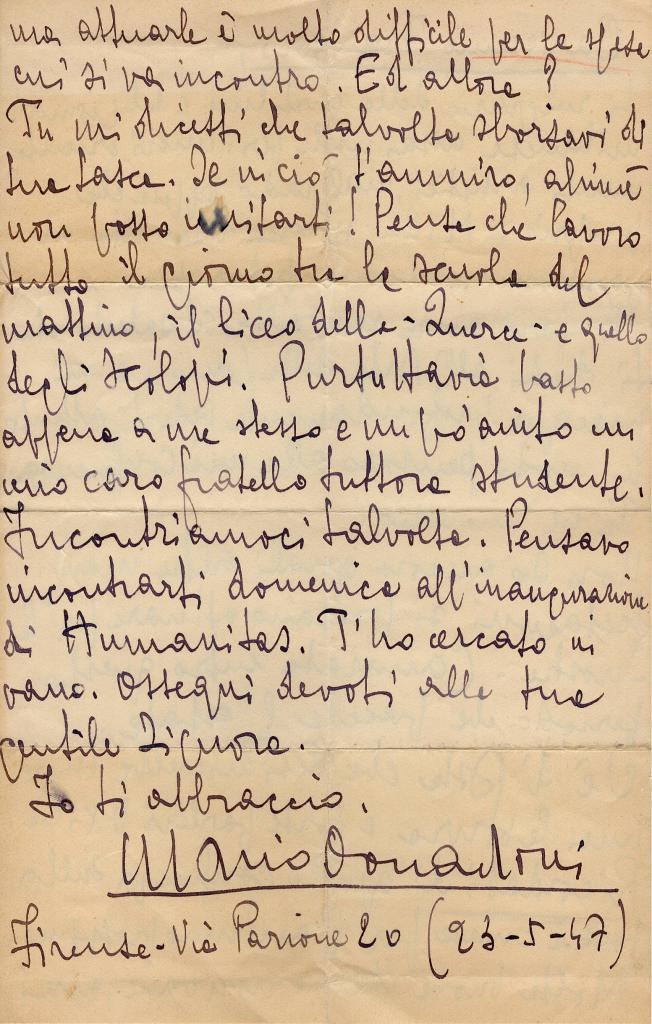 ma attuarle è molto difficile per le spese
cui si va incontro. Ed allora?
Tu mi dicesti che talvolta sborsavi di
tua tasca. Se in ciò t'ammiro, ahimè
non posso imitarti! Pensa che lavoro
tutto il giorno tra la scuola del
mattino, il liceo della - Querce - e quello
degli Scolopi. Purtuttavia basto
appena a me stesso e un pò aiuto un
mio caro fratello tuttora studente.
Incontriamoci talvolta. Pensavo
incontrarti domenica all'inaugurazione
di Humanitas. T'ho cercato in
vano. Ossequi devoti alla tua
gentile Signora.
Io ti abbraccio.
Mario Donadoni
Firenze - Via Parione 20 (23-5-47)